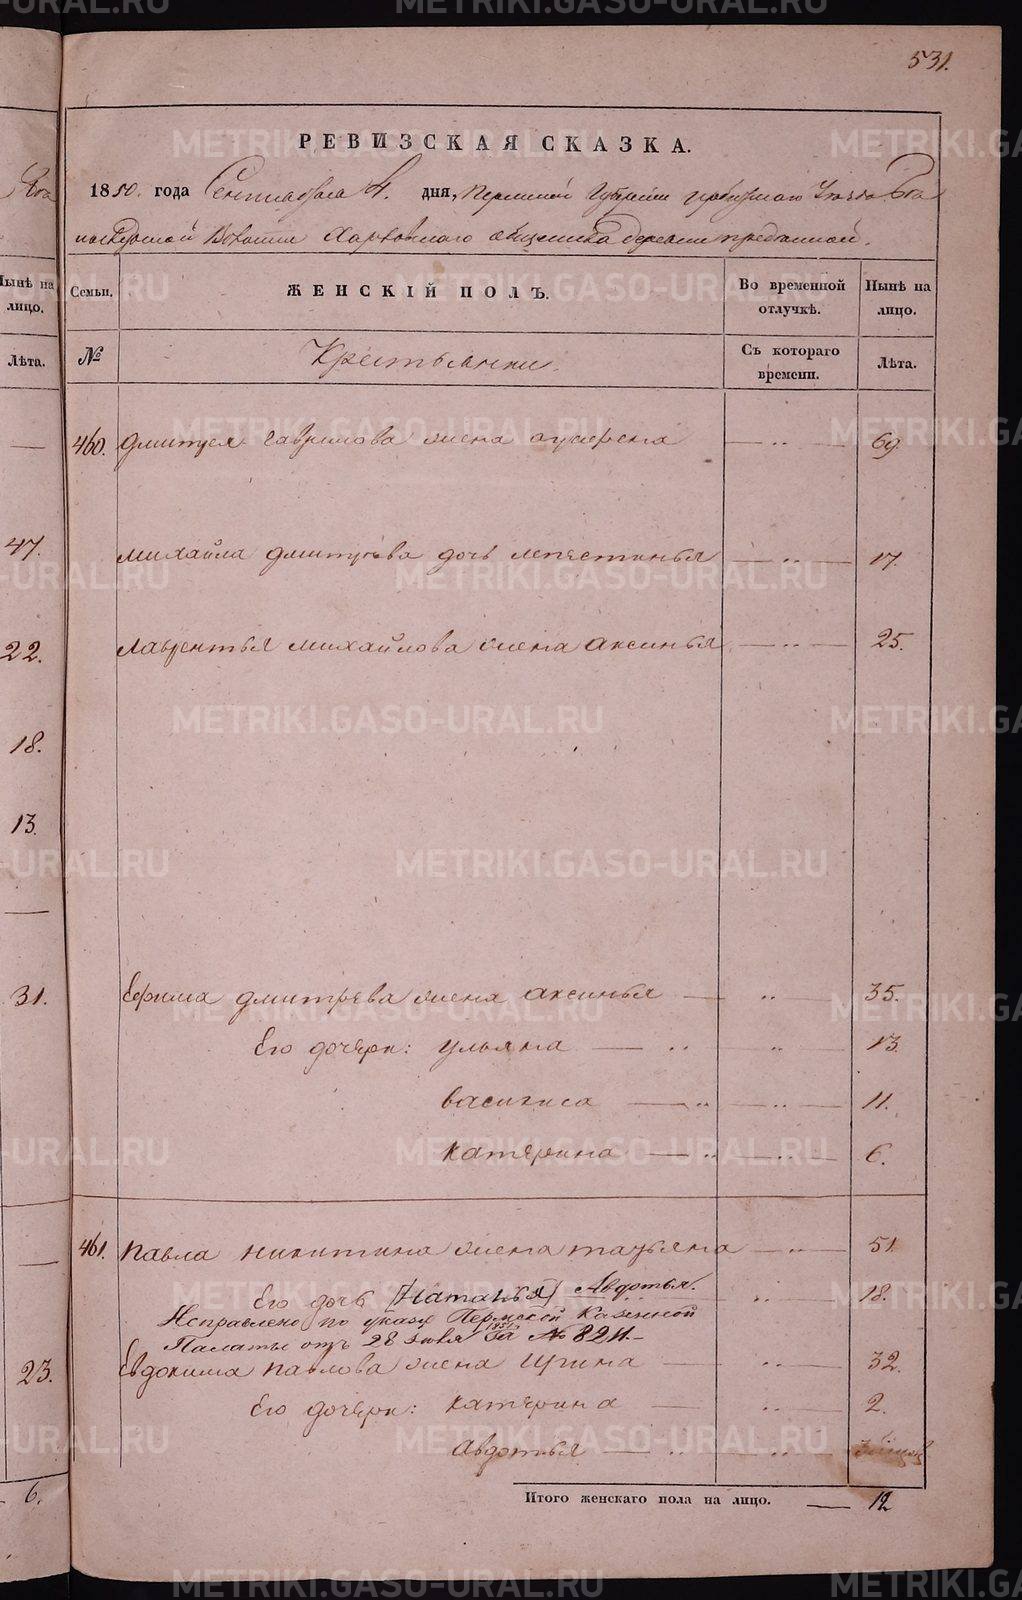 531.
РЕВИЗСКАЯ СКАЗКА.
1850. года Сентября 4. дня, Пермской Губернии Уезда
Волости общества деревни
Семьи. ЖЕНСКІЙ ПОЛЪ. Во временной отлучкѣ. Нынѣ на лицо.
№ Крестьянки. Съ котораго времени. Лѣта.
460. Дмитрея Гаврилова жена — " — 69.
Михайла Дмитрева дочь — " — 17.
Лаврентья Михайлова жена Аксинья — " — 25.
Ефима Дмитрева жена Аксинья — " — 35.
Его дочери: Ульяна — " — " — 13.
Васимиса — " — " — 11.
Катярина — " — " — 6.
461. Павла Никитина жена Татьяна — " — 51.
Его дочь [Наталья] Авдотья. " — 18.
Исправлено по указу Пермской Казенной
Палаты отъ 28 1851 Га № 8211.—
Евдокима Павлова жена Ирина — " — 32.
Его дочери: Катярина — " — 2.
Авдотья — " — " —
Итого женскаго пола на лицо. — 12
Нынѣ на лицо.
Лѣта.
—
47.
22.
18.
13.
—
31.
—
23.
6.
METRIKI.GASO-URAL.RU